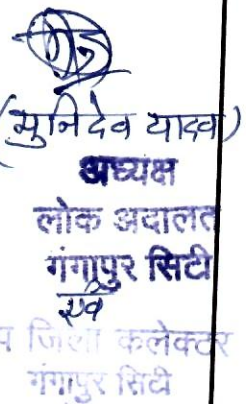 (मुनिदेव यादव)
अध्यक्ष
लोक अदालत
गंगापुर सिटी
एवं
जिला कलेक्टर
गंगापुर सिटी